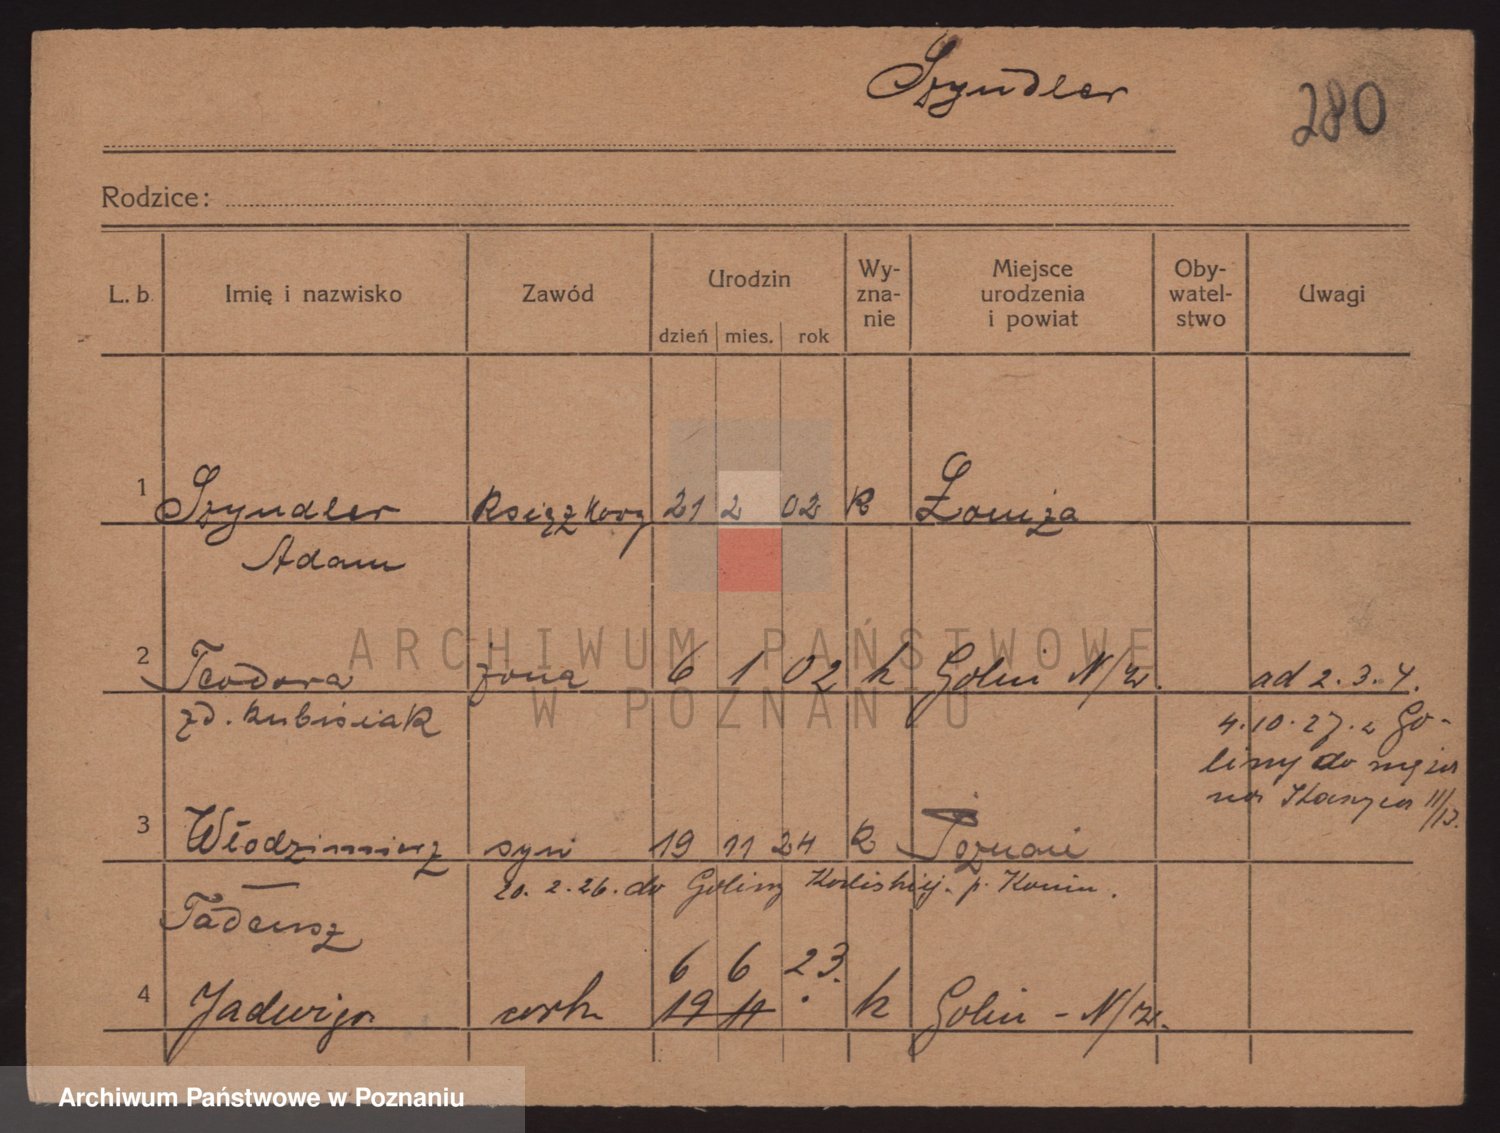 Szyndler
280
Rodzice:
L. b. Imię i nazwisko Zawód Urodzin dzień mies. rok Wy-zna-nie Miejsce urodzenia i powiat Oby-watel-stwo Uwagi
1 Szyndler Książkowy 21 2 02 k Łomża
Adam
2 Teodora żona 6 1 02 k Golin N/W. ad 2. 3. 4.
zd. Kubisiak
4.10.27. z Go-
liny do męża
na
3 Włodzimierz syn 19 11 24 k Poznań
20. 2. 26. do Goliny p. Konin.
Tadeusz
6 6 23.
4 Jadwiga córk 19 11 k Golin - N/W.
ARCHIWUM PAŃSTWOWE
W POZNANIU
Archiwum Państwowe w Poznaniu